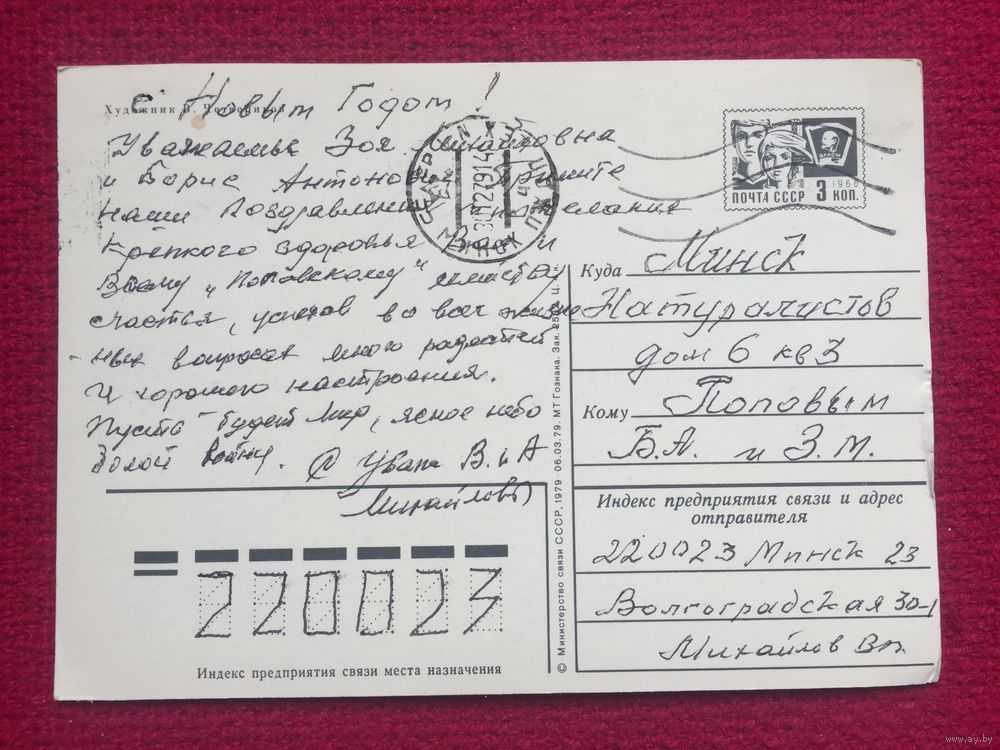 Художник В. Четвериков
С Новым Годом!
Уважаемые Зоя Михайловна
и Борис Антонович Примите
наши Поздравления пожелания
крепкого здоровья Вам и
Всему "Поповскому" семейству
счастья, успехов во всех жизне
-нных вопросах много радостей
и хорошего настроения.
Пусть будет мир, ясное небо
Долой войну. С Уваж В. и А
Михайловы
ПОЧТА СССР 3 КОП.
1966
ВЛКСМ
МИНСК
Куда Минск
Натуралистов
дом 6 кв 3
Кому Поповым
Б.А. и З.М.
Индекс предприятия связи и адрес
отправителя
220023 Минск 23
Волгоградская 30-1
Михайлов Вл.
220023
Индекс предприятия связи места назначения
© Министерство связи СССР, 1979 06.03.79. МТ Гознака. Зак.
www.ay.by